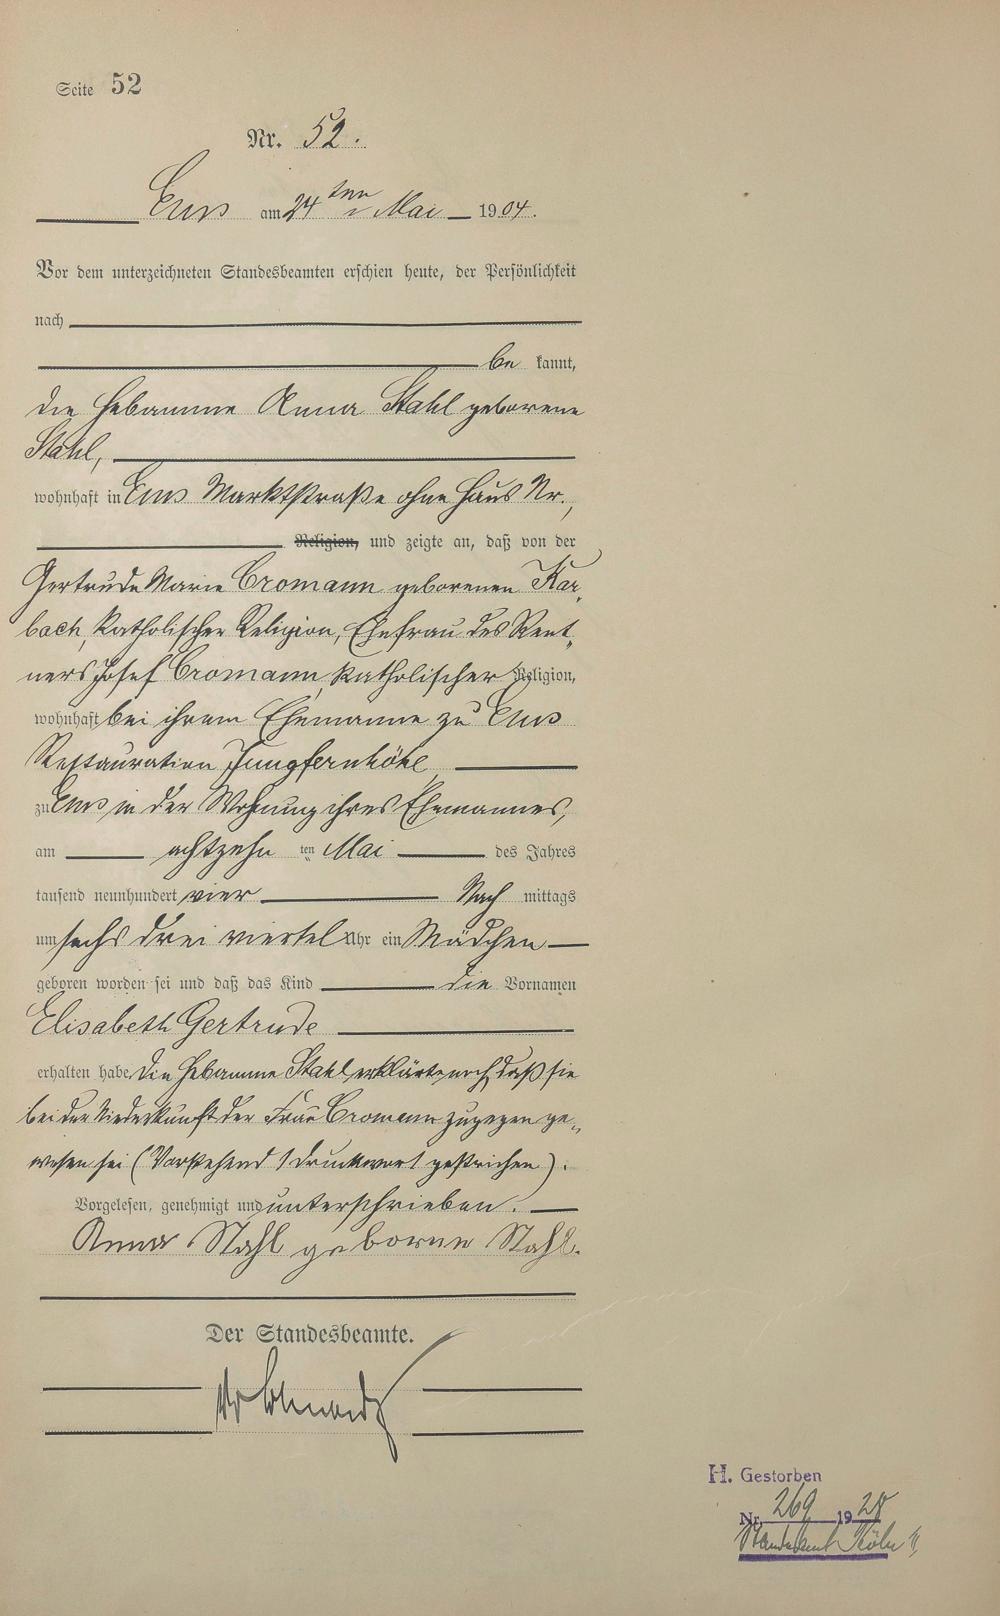 Seite 52
Nr. 52.
Ems am 24ten Mai 1904.
Vor dem unterzeichneten Standesbeamten erschien heute, der Persönlichkeit
nach
be kannt,
die Hebamme Anna Stahl geborene
Stahl,
wohnhaft in Ems Marktstraße ohne Haus Nr.,
Religion, und zeigte an, daß von der
Gertrude Marie Cromann geborenen Kar,
bach, katholischer Religion, Ehefrau des Rent,
ners Josef Cromann, katholischer Religion,
wohnhaft bei ihrem Ehemanne zu Ems
Restauration Jungfernhöhe
zu Ems in der Wohnung ihres Ehemannes,
am achtzehn ten Mai des Jahres
tausend neunhundert vier Nach mittags
um sechs drei viertel Uhr ein Mädchen
geboren worden sei und daß das Kind die Vornamen
Elisabeth Gertrude
erhalten habe. Die Hebamme Stahl erklärte noch, daß sie
bei der Niederkunft der Frau Cromann zugegen ge„
wesen sei (Vorstehend 1 Druckwort gestrichen).
Vorgelesen, genehmigt und unterschrieben.
Anna Stahl geborne Stahl.
Der Standesbeamte.
H. Gestorben
Nr. 269 1928
Standesamt Köln